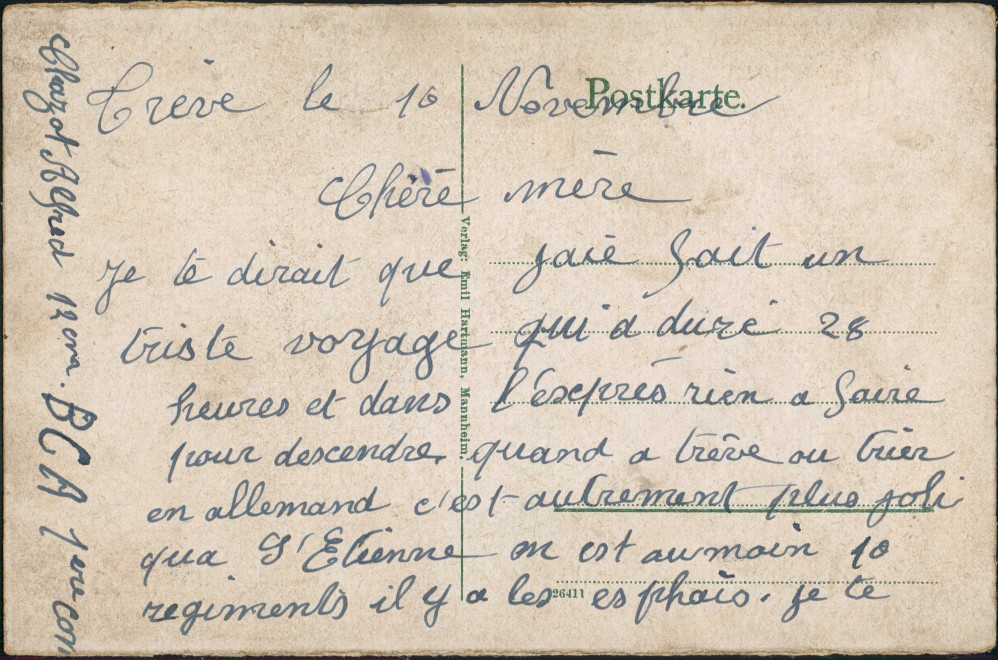 Postkarte.
Trève le 10 Novembre
Chère mère
je te dirait que jaie fait un
triste voyage qui a duré 28
heures et dans l'éxprés rien a faire
pour descendre, quand a trêve ou trier
en allemand c'est autrement plus joli
qua St Etienne on est au moin 10
regiments il y a les es phais. je te
Chazot Alfred 12em. BCA 1ere com
Verlag: Emil Hartmann, Mannheim.
26411